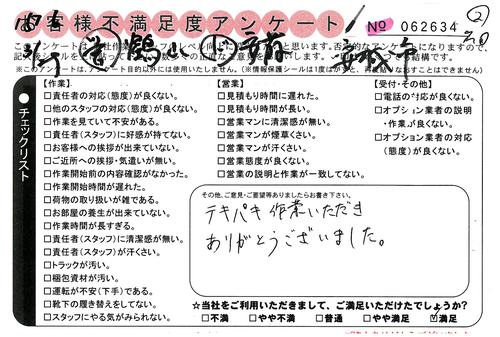 お客様不満足度アンケート
No 062634
チェックリスト
【作業】
□責任者の対応(態度)が良くない。
□他のスタッフの対応(態度)が良くない。
□作業を見ていて不安がある。
□責任者(スタッフ)に好感が持てない。
□お客様への挨拶が出来ていない。
□ご近所への挨拶・気遣いが無い。
□作業開始前の内容確認がなかった。
□作業開始時間が遅れた。
□荷物の取り扱いが雑である。
□お部屋の養生が出来ていない。
□作業時間が長すぎる。
□責任者(スタッフ)に清潔感が無い。
□責任者(スタッフ)が汗くさい。
□トラックが汚い。
□梱包資材が汚い。
□運転が不安(下手)である。
□靴下の履き替えをしてない。
□スタッフにやる気がみられない。
【営業】
□見積もり時間に遅れた。
□見積もり時間が長い。
□営業マンに清潔感が無い。
□営業マンが煙草くさい。
□営業マンが汗くさい。
□営業態度が良くない。
□営業の説明と作業が一致してない。
【受付・その他】
□電話の対応が良くない。
□オプション業者の説明
・作業が良くない。
□オプション業者の対応
(態度)が良くない。
その他、ご意見・ご要望等ありましたらお書き下さい。
テキパキ作業いただき
ありがとうございました。
☆当社をご利用いただきまして、ご満足いただけたでしょうか?
□不満 □やや不満 □普通 □やや満足 ☑満足